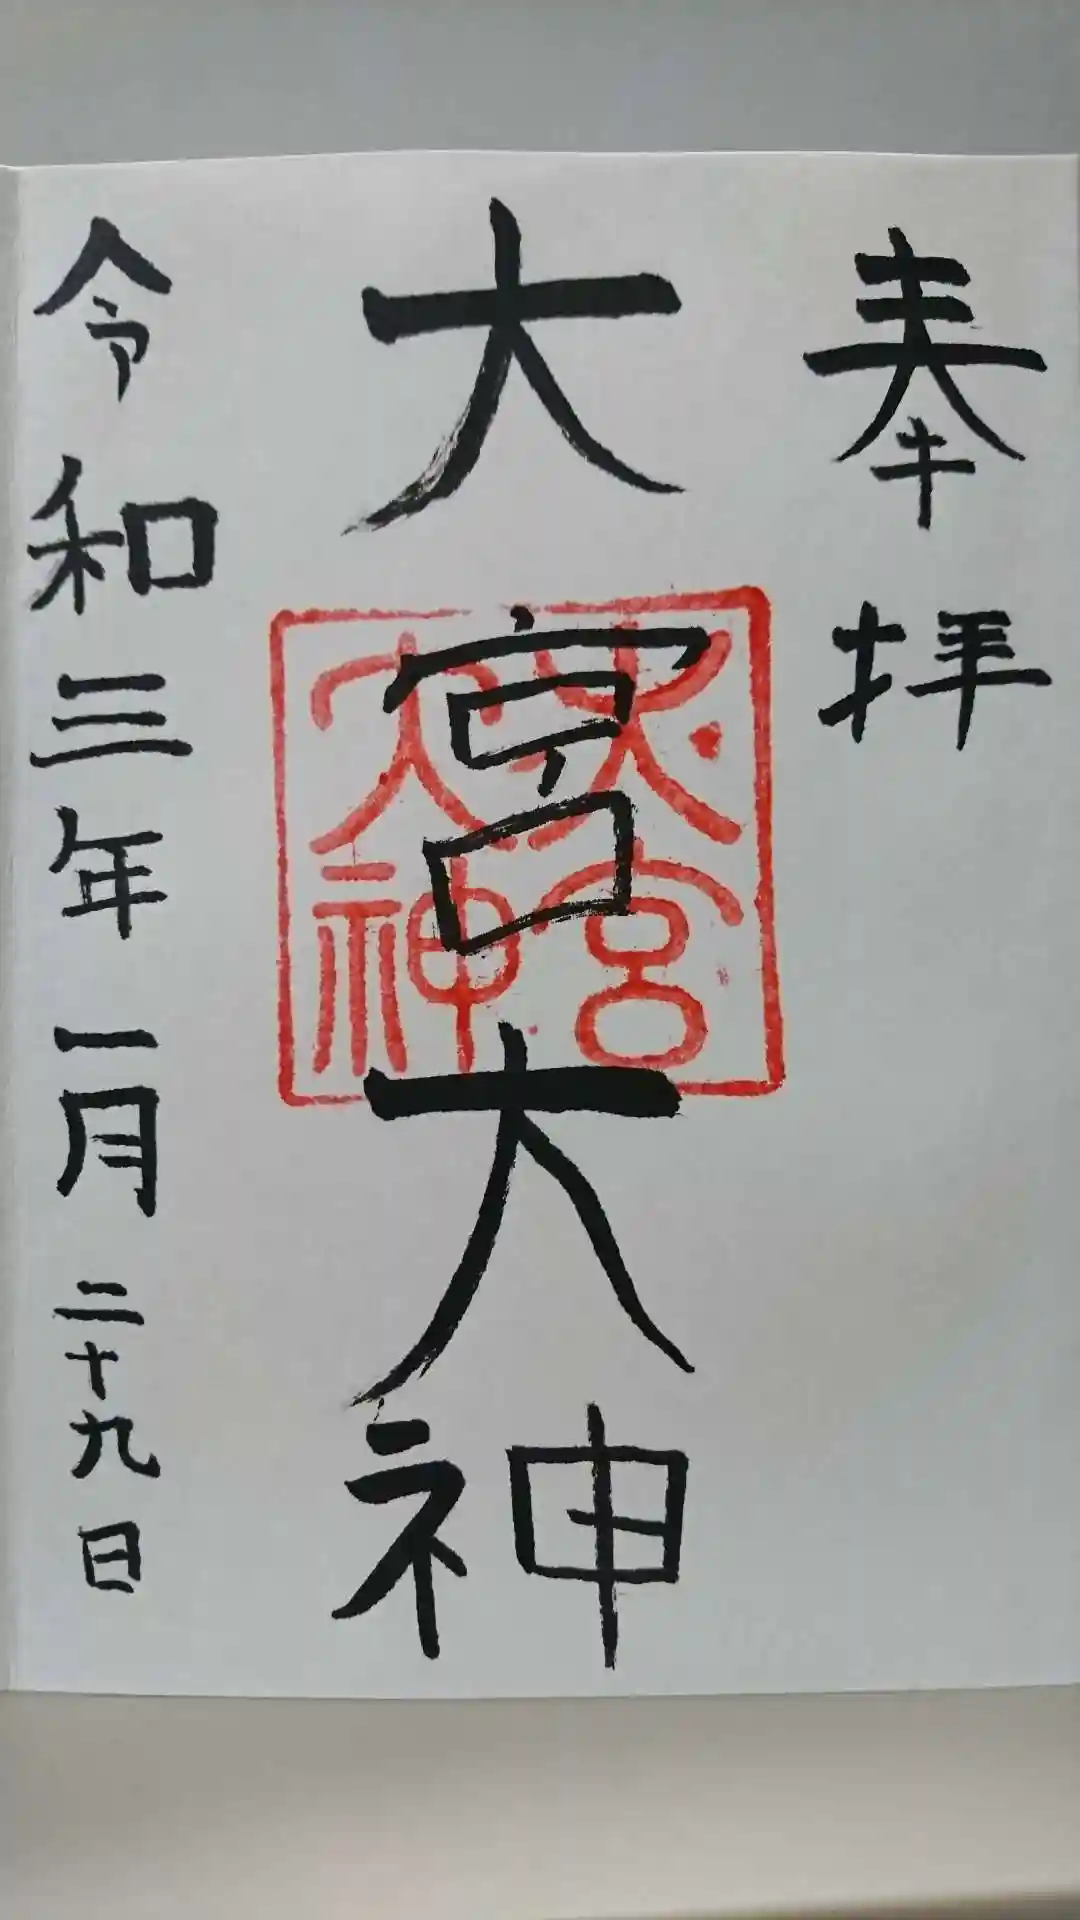 奉拝
大宮大神
宮
大神
令和三年一月二十九日